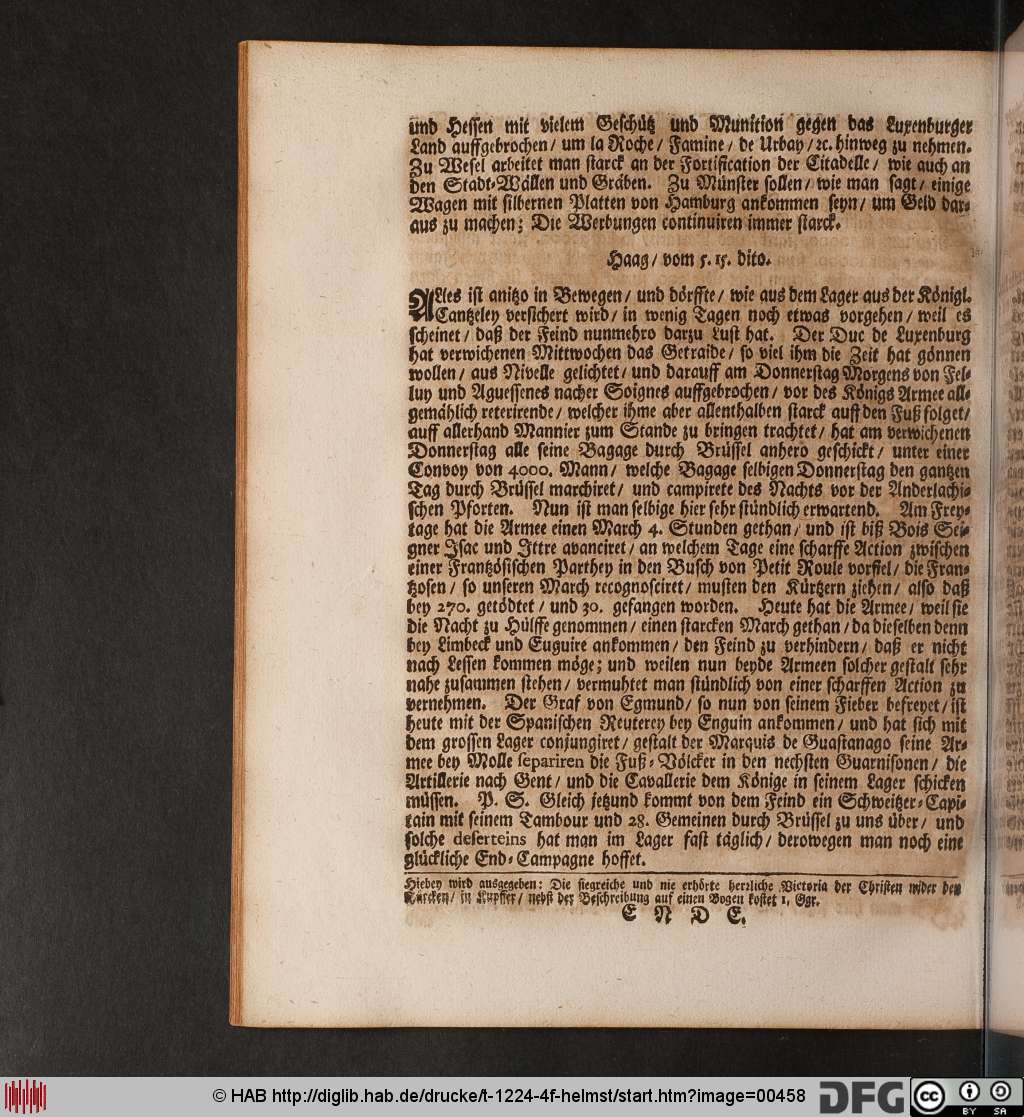 und Hessen mit vielem Geschütz und Munition gegen das Luxenburger
Land auffgebrochen/ um la Roche/ Famine/ de Urbay/ ꝛc. hinweg zu nehmen.
Zu Wesel arbeitet man starck an der Fortification der Citadelle/ wie auch an
den Stadt-Wällen und Gräben. Zu Münster sollen/ wie man sagt/ einige
Wagen mit silbernen Platten von Hamburg ankommen seyn/ um Geld dar-
aus zu machen; Die Werbungen continuiren immer starck.
Haag/ vom 5. 15. dito.
ALles ist anitzo in Bewegen/ und dörffte/ wie aus dem Lager aus der Königl.
Cantzeley versichert wird/ in wenig Tagen noch etwas vorgehen/ weil es
scheinet/ daß der Feind nunmehro darzu Lust hat. Der Duc de Luxenburg
hat verwichenen Mittwochen das Getraide/ so viel ihm die Zeit hat gönnen
wollen/ aus Nivelle gelichtet/ und darauff am Donnerstag Morgens von Fel-
luy und Aguessenes nacher Soignes auffgebrochen/ vor des Königs Armee all-
gemählich reterirende/ welcher ihme aber allenthalben starck auff den Fuß folget/
auff allerhand Mannier zum Stande zu bringen trachtet/ hat am verwichenen
Donnerstag alle seine Bagage durch Brüssel anhero geschickt/ unter einer
Convoy von 4000. Mann/ welche Bagage selbigen Donnerstag den gantzen
Tag durch Brüssel marchiret/ und campirete des Nachts vor der Anderlachi-
schen Pforten. Nun ist man selbige hier sehr stündlich erwartend. Am Frey-
tage hat die Armee einen March 4. Stunden gethan/ und ist biß Bois Sei-
gner Isac und Ittre avanciret/ an welchem Tage eine scharffe Action zwischen
einer Frantzösischen Parthey in den Busch von Petit Roule vorfiel/ die Fran-
tzosen/ so unseren March recognosciret/ musten den Kürtzern ziehen/ also daß
bey 270. getödtet/ und 30. gefangen worden. Heute hat die Armee/ weil sie
die Nacht zu Hülffe genommen/ einen starcken March gethan/ da dieselben denn
bey Limbeck und Euguire ankommen/ den Feind zu verhindern/ daß er nicht
nach Lessen kommen möge; und weilen nun beyde Armeen solcher gestalt sehr
nahe zusammen stehen/ vermuhtet man stündlich von einer scharffen Action zu
vernehmen. Der Graf von Egmund/ so nun von seinem Fieber befreyet/ ist
heute mit der Spanischen Reuterey bey Enguin ankommen/ und hat sich mit
dem grossen Lager conjungiret/ gestalt der Marquis de Guastanago seine Ar-
mee bey Molle separiren die Fuß-Völcker in den nechsten Guarnisonen/ die
Artillerie nach Gent/ und die Cavallerie dem Könige in seinem Lager schicken
müssen. P. S. Gleich jetzund kommt von dem Feind ein Schweitzer-Capi-
tain mit seinem Tambour und 28. Gemeinen durch Brüssel zu uns über/ und
solche deserteins hat man im Lager fast täglich/ derowegen man noch eine
glückliche End-Campagne hoffet.
Hiebey wird ausgegeben: Die siegreiche und nie erhörte herzliche Victoria der Christen wider den
Türcken/ in Kupffer/ nebst der Beschreibung auf einen Bogen kostet 1. Ggr.
E N D E.
© HAB http://diglib.hab.de/drucke/t-1224-4f-helmst/start.htm?image=00458
DFG
cc BY SA